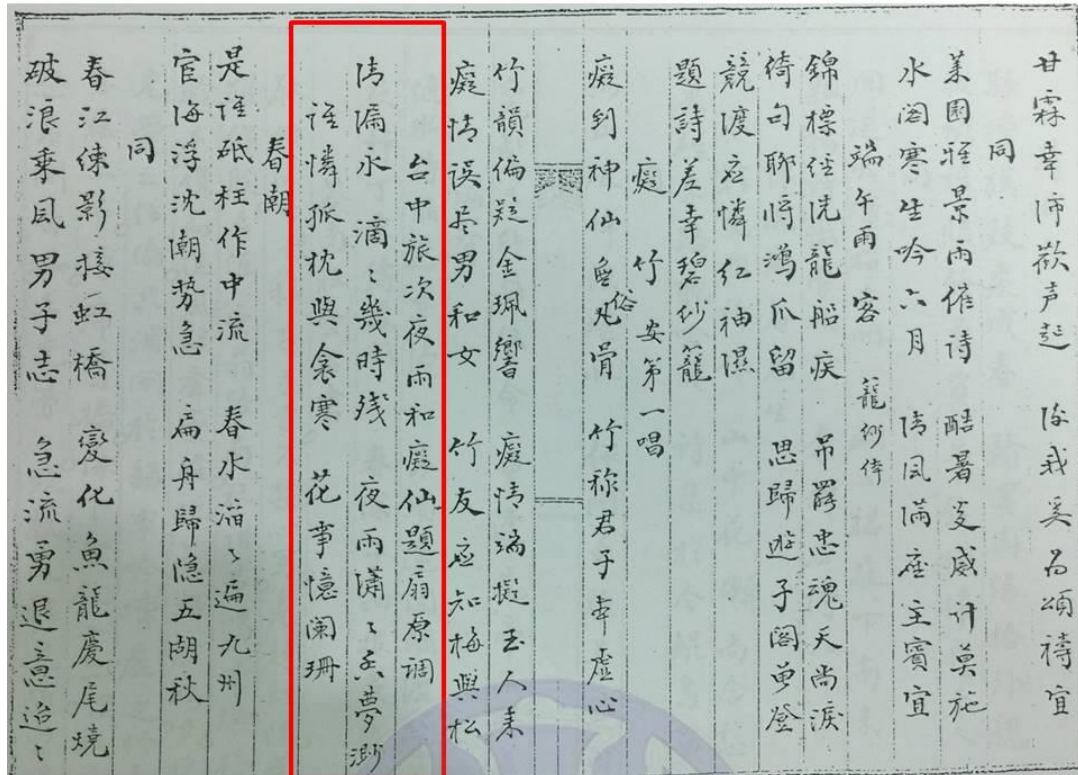 甘霖幸沛歡声起　後我奚為頌禱宜
同
某園雅景雨催詩　酷暑炎威计莫施
水阁寒生吟六月　清风满座主賓宜
端午雨　客　籠紗体
錦標径洗龍船疾　吊罢忠魂天尚淚
绮句聊將鴻爪留　思歸遊子阁曽登
競渡应憐红袖濕
題詩差幸碧纱籠
癡　竹　安第一唱
癡到神仙無俗骨　竹称君子本虚心
竹韻偏疑金珮響　癡情端擬玉人来
癡情误尽男和女　竹友应知梅與松
台中旅次夜雨和癡仙題扇原调
清漏永　滴〻幾時残　夜雨瀟〻香夢渺
谁憐孤枕與衾寒　花事憶阑珊
春潮
是谁砥柱作中流　春水滔〻遍九州
官海浮沈潮势急　扁舟歸隐五胡秋
同
春江练影接虹橋　變化魚龍慶尾燒
破浪乘风男子志　急流勇退意迢〻